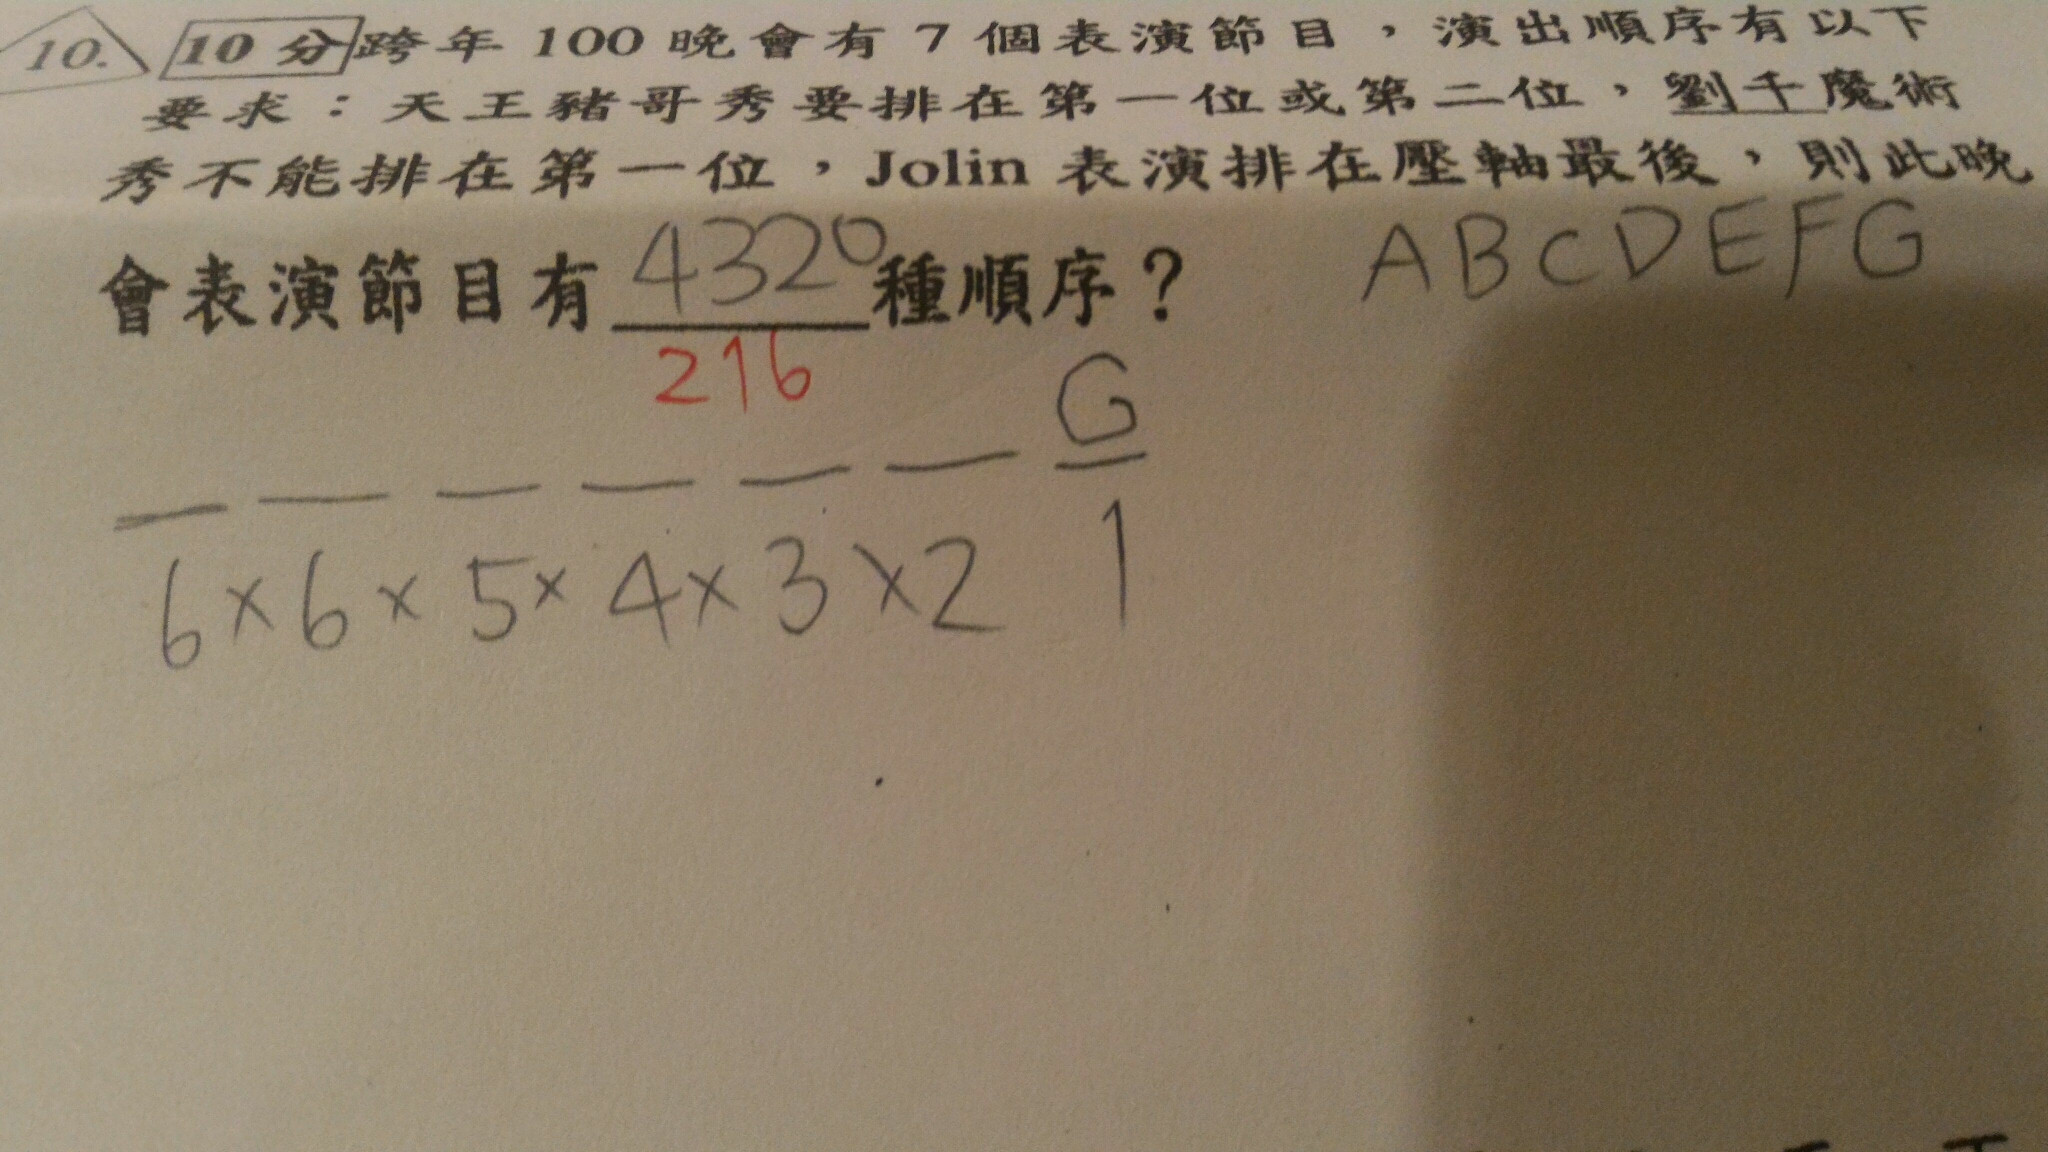 10. 10分 跨年100晚會有7個表演節目，演出順序有以下
要求：天王豬哥秀要排在第一位或第二位，劉千魔術
秀不能排在第一位，Jolin表演排在壓軸最後，則此晚
會表演節目有 4320 種順序？ ABCDEFG
216
G
6×6×5×4×3×2 1